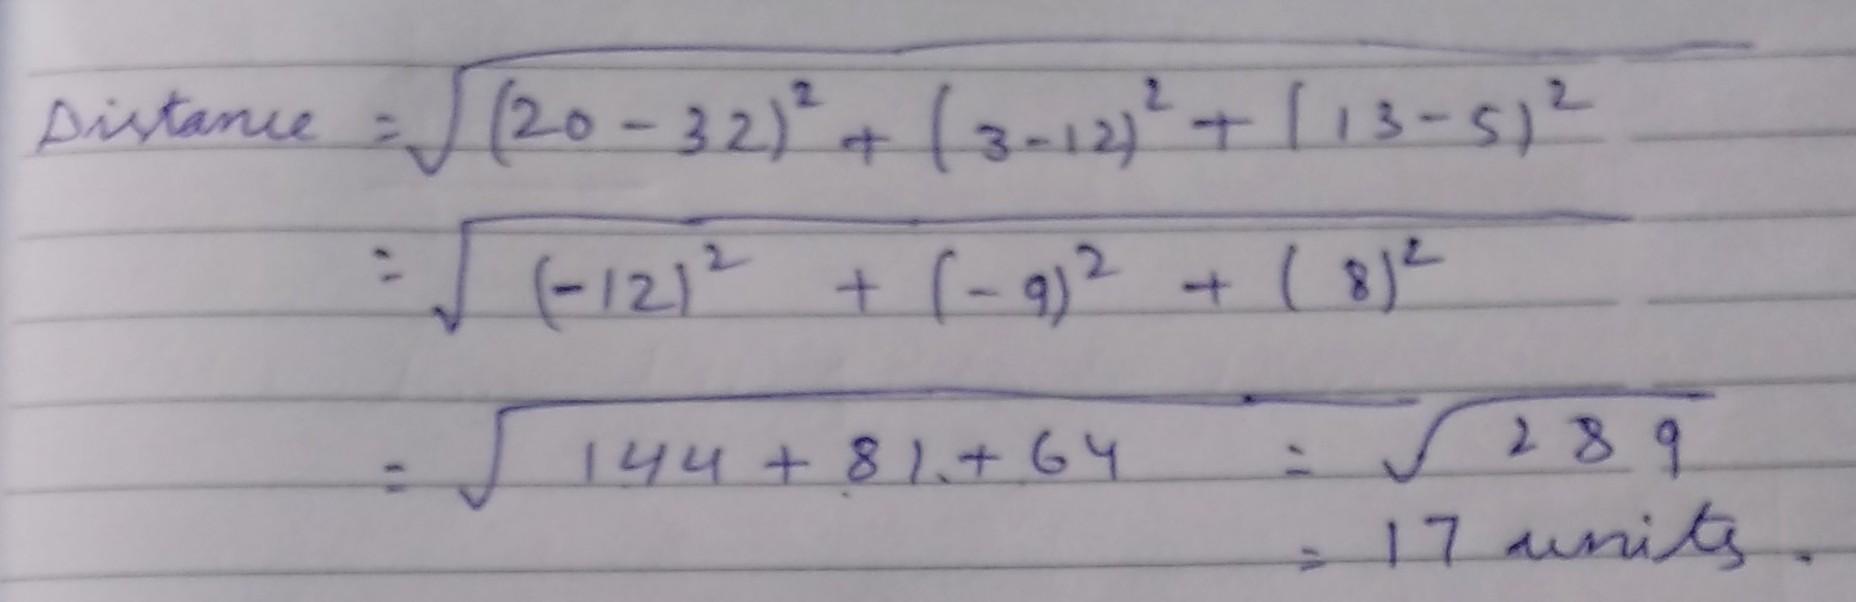 Distance = √(20 - 32)² + (3-12)² + (13-5)²
= √(-12)² + (-9)² + (8)²
= √144 + 81 + 64 = √289
= 17 units.